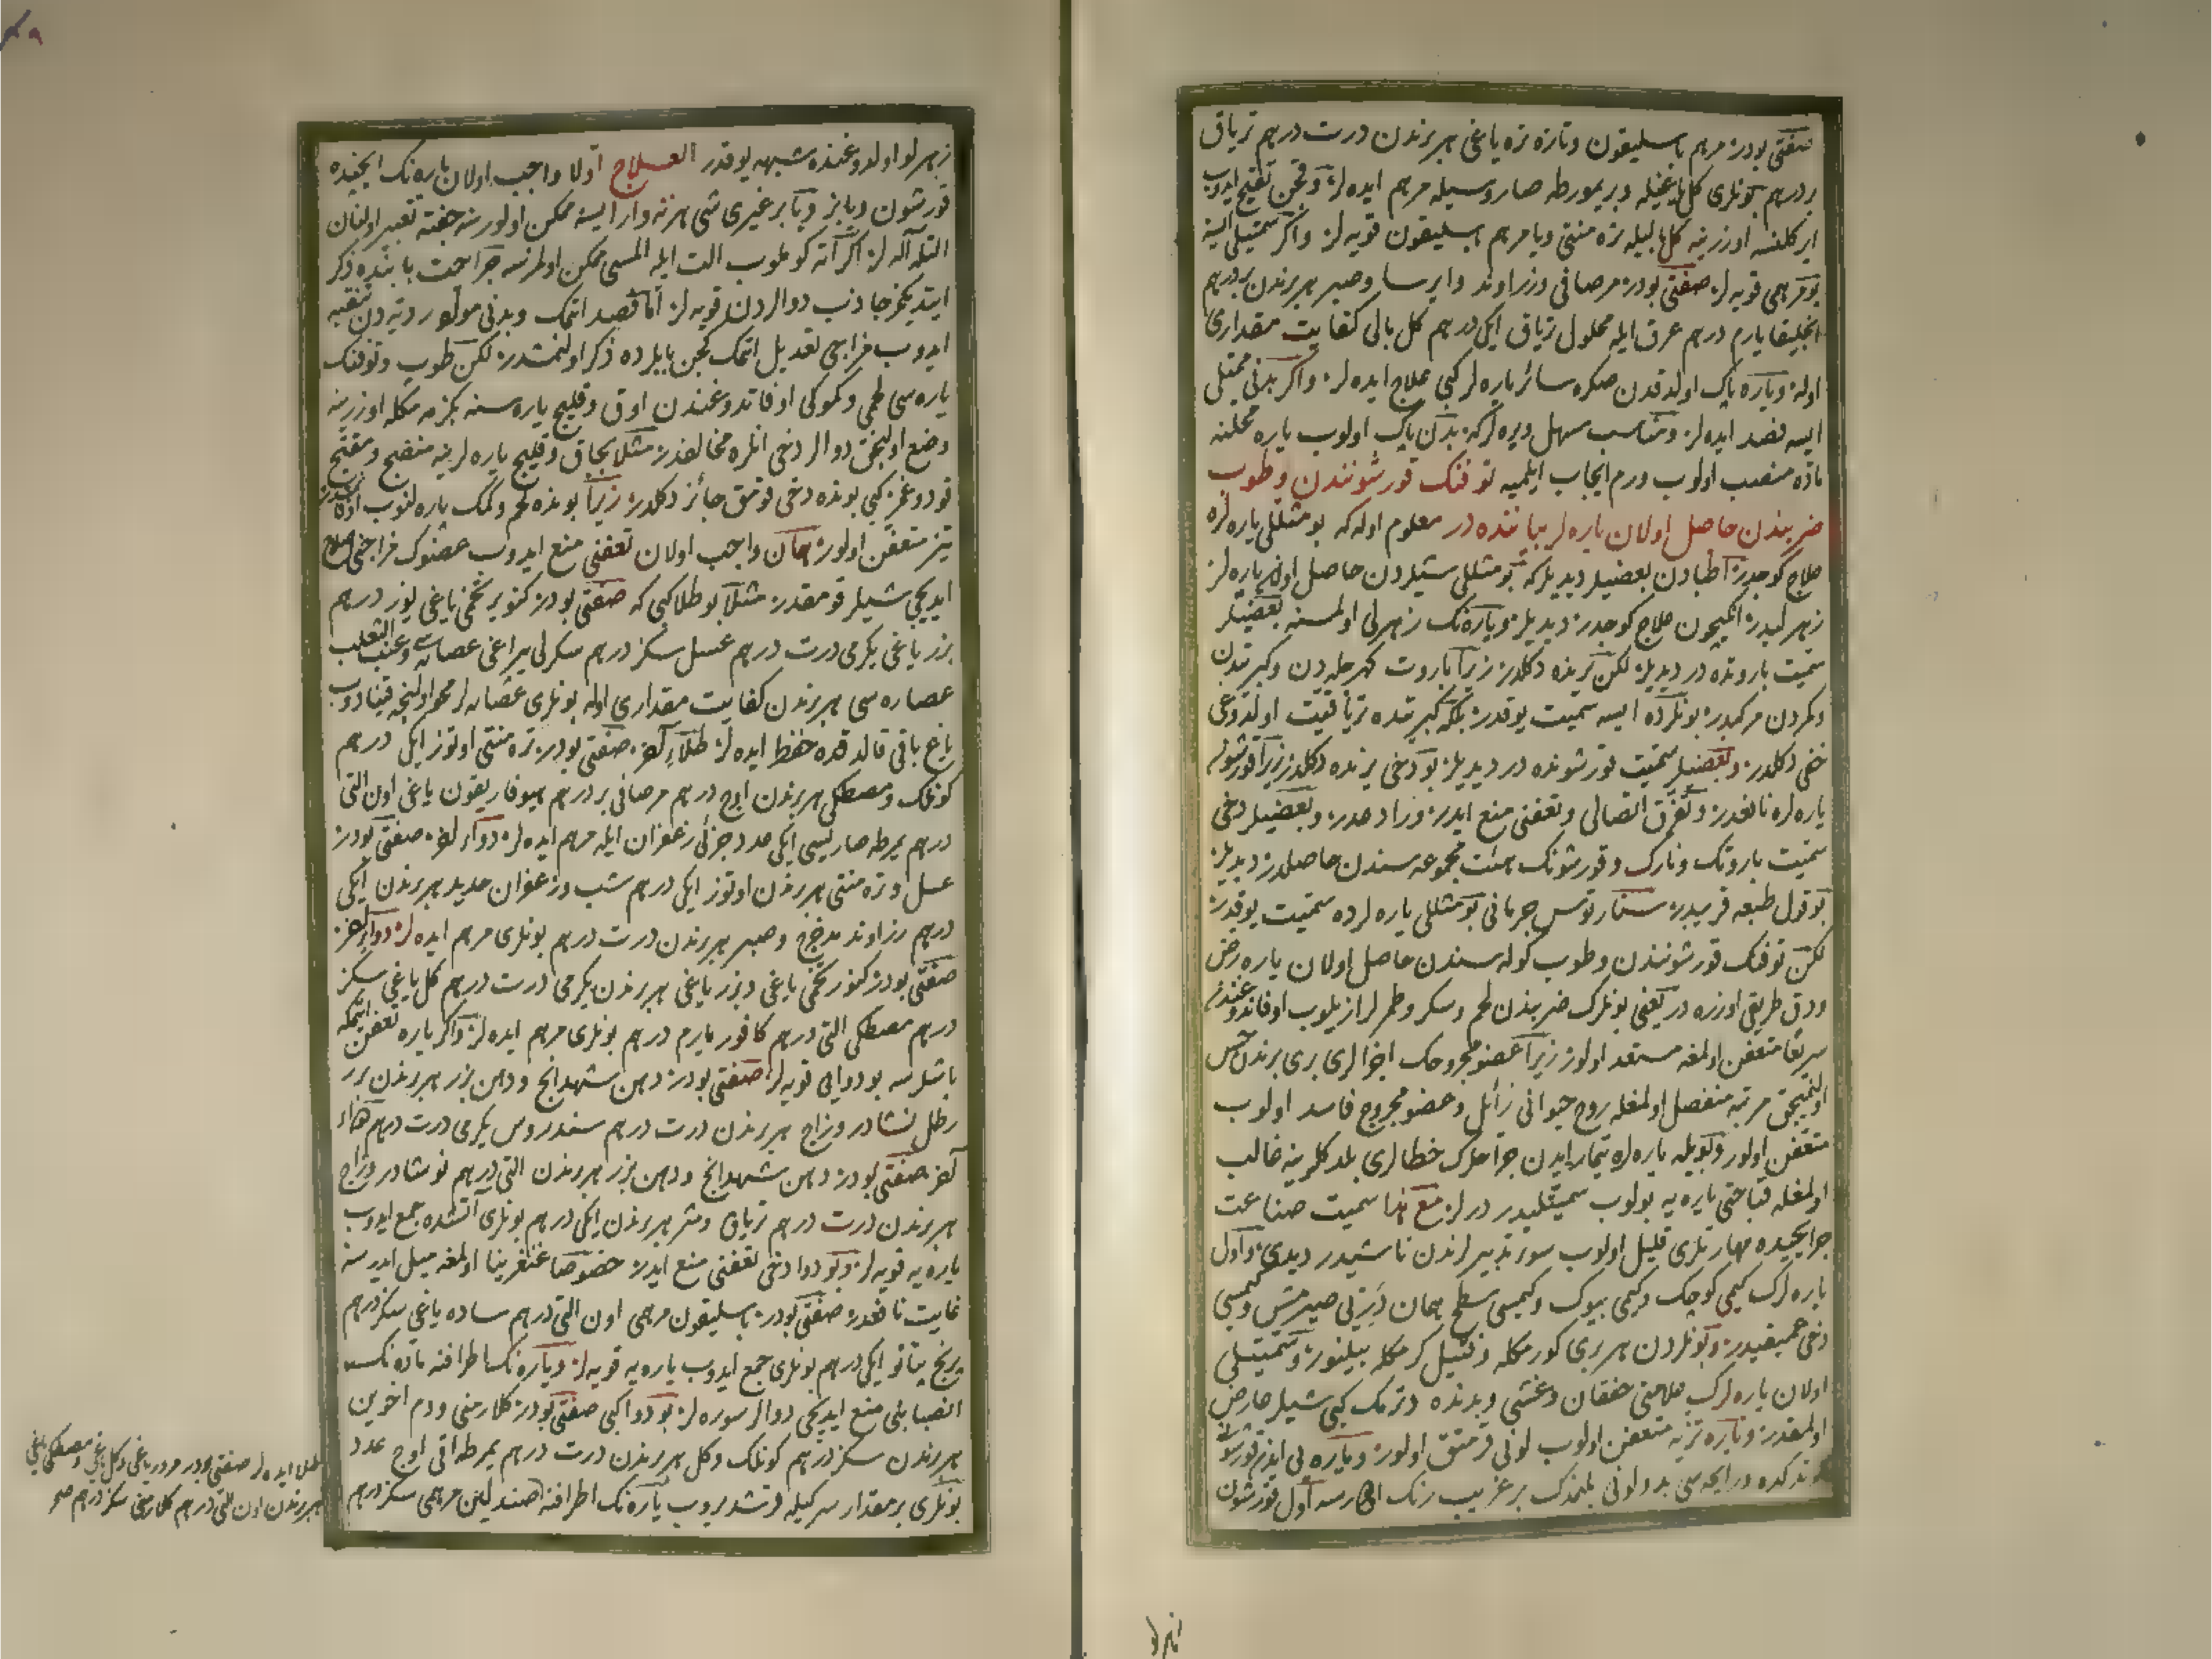 صفتی بودر مرهم باسلیقون وتازه تره یاغی هر برندن درت درهم تریاق
بر درهم بونلری کل یاغیله وبر یمورطه صاروسیله مرهم ایده لر وقچن تقیح ایدوب
ایرکلنسه اوزرینه کل بالیله تره منتی ویا مرهم باسلیقون قویه لر واکر سمیتلی ایسه
بو مرهمی قویه لر صفتی بودر مرصافی وزراوند وایرسا وصبر هر برندن بر درهم
انجلیقا یارم درهم عرق ایله محلول تریاق ایکی درهم کل بالی کفایت مقداری
اوله ویاره پاک اولدقدن صکره سائر یاره لر کبی علاج ایده لر واکر بدنی ممتلی
ایسه فصد ایده لر ومناسب مسهل ویره لر که بدن پاک اولوب یاره محلنه
ماده منصب اولوب ورم ایجاب ایلمیه توفنک قورشونندن وطوب
ضربندن حاصل اولان یاره لر بیاننده در معلوم اوله که بو مثللی یاره لره
علاج کوجدر اطبادن بعضیلر دیدیلر که بو مثللی شیلردن حاصل اولان یاره لر
زهرلیدر انکیچون علاج کوجدر دیدیلر ویاره نک زهرلی اولمسنه بعضیلر
سمیت باروتده در دیدیلر لکن یرنده دکلدر زیرا باروت کهرجله دن وکبریتدن
وکمردن مرکبدر بونلرده ایسه سمیت یوقدر بلکه کبریتده تریاقیت اولدوغی
خفی دکلدر وبعضیلر سمیت قورشونده در دیدیلر بو دخی یرنده دکلدر زیرا قورشون
یاره لره نافعدر وتفرق اتصالی وتعفنی منع ایدر وبعضیلر دخی
سمیت باروتک ونارک وقورشونک هیئت مجموعه سندن حاصلدر دیدیلر
بو قول طبعه قریبدر سنارتوس جرمانی بو مثللی یاره لرده سمیت یوقدر
لکن توفنک قورشونندن وطوب کوله سندن حاصل اولان یاره رض
ودق طریقی اوزره در یعنی بونلرک ضربندن لحم وسکر وطمرلر ازیلوب اوفاندوغندن
سریعا متعفن اولمغه مستعد اولور زیرا عضو مجروحک اجزالری بری برندن
مرتبه منفصل اولمغله روح حیوانی زائل وعضو مجروح فاسد اولوب
متعفن اولور وبویله یاره لره تیمار ایدن جراحلرک خطالری بلدکلرینه غالب
اولمغله قباحتی یاره یه بولوب سمیتلیدر درلر مع هذا سمیت صناعت
جراحیده مهارتلری قلیل اولوب سوء تدبیرلرندن ناشیدر دیدی واول
یاره لرک کیمی کوچک وکیمی بیوک وکیمیسی سطح همان دریی صیرمش وکیمیسی
دخی عمیقدر وبونلردن هر بری کورمکله وفتیل کرمکله بیلنور وسمیتلی
اولان یاره لرک علامتی خفقان وغشی وبدنده دترمک کبی شیلر عارض
اولمقدر ویاره تزیه متعفن اولوب لونی قرمتق اولور ویاره یی ایدن قورشون
کوندرکده ورایحه سی بد ولونی بلمدک بر غریب رنک اول قورشون
زهرلو
زهرلو اولدوغنده شبهه یوقدر العلاج اولا واجب اولان یاره نک ایچنده
قورشون ویا بز ویا بر غیری شی هر نه وار ایسه ممکن اولورسه جفته تعبیر اولنان
التله آله لر اکر آته کو طوب الت ایله المسی ممکن اولمزسه جراحت بابنده ذکر
ایتدیکمز جاذب دوالردن قویه لر اما فصد اتمک وبدنی مواد ردیه دن تنقیه
ایدوب مزاجی تعدیل اتمک کچن بابلرده ذکر اولنمشدر لکن طوب وتوفنک
یاره سی طمری وکموکی اوفاتدوغندن اوق وقلیج یاره سنه بکزمه مکله اوزرینه
وضع اولنجق دوالر دخی انلره مخالفدر مثلا بچاق وقلیج یاره لرینه منضج ومقیح
قودوغمز کبی بونده دخی قومق جائز دکلدر زیرا بونده لحم وکمک یاره لنوب
تیز متعفن اولور همان واجب اولان تعفنی منع ایدوب عضوک مزاجنی اصلاح
ایدیجی شیلر قومقدر مثلا بو طلا کبی که صفتی بودر کنویر تخمی یاغی یوز درهم
بزر یاغی یکرمی درت درهم عسل سکز درهم سکرلی یپراغی عصاره سی وعنب الثعلب
عصاره سی هر برندن کفایت مقداری اوله بونلری عصاره لر محو اولنجه قینادوب
یاغ باقی قالدقده حفظ ایده لر طلاء آخر صفتی بودر تره منتی اوتوز ایکی درهم
کونلک ومصطکی هر برندن اوج درهم مرصافی بر درهم هیوفاریقون یاغی اون التی
درهم یمرطه صاریسی ایکی عدد جزئی زعفران ایله مرهم ایده لر دواء آخر صفتی بودر
عسل وتره منتی هر برندن اوتوز ایکی درهم شب وزعفران حدید هر برندن ایکی
درهم زراوند مدحرج وصبر هر برندن درت درهم بونلری مرهم ایده لر دواء آخر
صفتی بودر کنویر تخمی یاغی وبزر یاغی هر برندن یکرمی درت درهم کل یاغی سکز
درهم مصطکی التی درهم کافور یارم درهم بونلری مرهم ایده لر واکر یاره تعفن اتمکه
باشلرسه بو دوایی قویه لر صفتی بودر دهن شهدانج ودهن بزر هر برندن برر
رطل نشادر وزاج هر برندن درت درهم سندروس یکرمی درت درهم دواء
آخر صفتی بودر دهن شهدانج ودهن بزر هر برندن التی درهم نوشادر وزاج
هر برندن درت درهم تریاق ومثر هر برندن ایکی درهم بونلری آتشده جمع ایدوب
یاره یه قویه لر وبو دوا دخی تعفنی منع ایدر خصوصا غنغرینا اولمغه میل ایدرسه
غایت نافعدر صفتی بودر باسلیقون مرهمی اون التی درهم ساده یاغی سکز درهم
ایکی درهم بونلری جمع ایدوب یاره یه قویه لر ویاره نک اطرافنه ماده نک
انصبابنی منع ایدیجی دوالر سوره لر بو دوا کبی صفتی بودر کلارمنی ودم اخوین
هر برندن سکز درهم کونلک وکل هر برندن درت درهم یمرطه اقی اوج عدد
بونلری بر مقدار سرکیله قرشدیروب یاره نک اطرافنه مرهمی سکز درهم
طلا ایده لر صفتی بودر یاغی وکل یاغی ومصطکی یاغی
هر برندن اون التی درهم کلارمنی سکز درهم